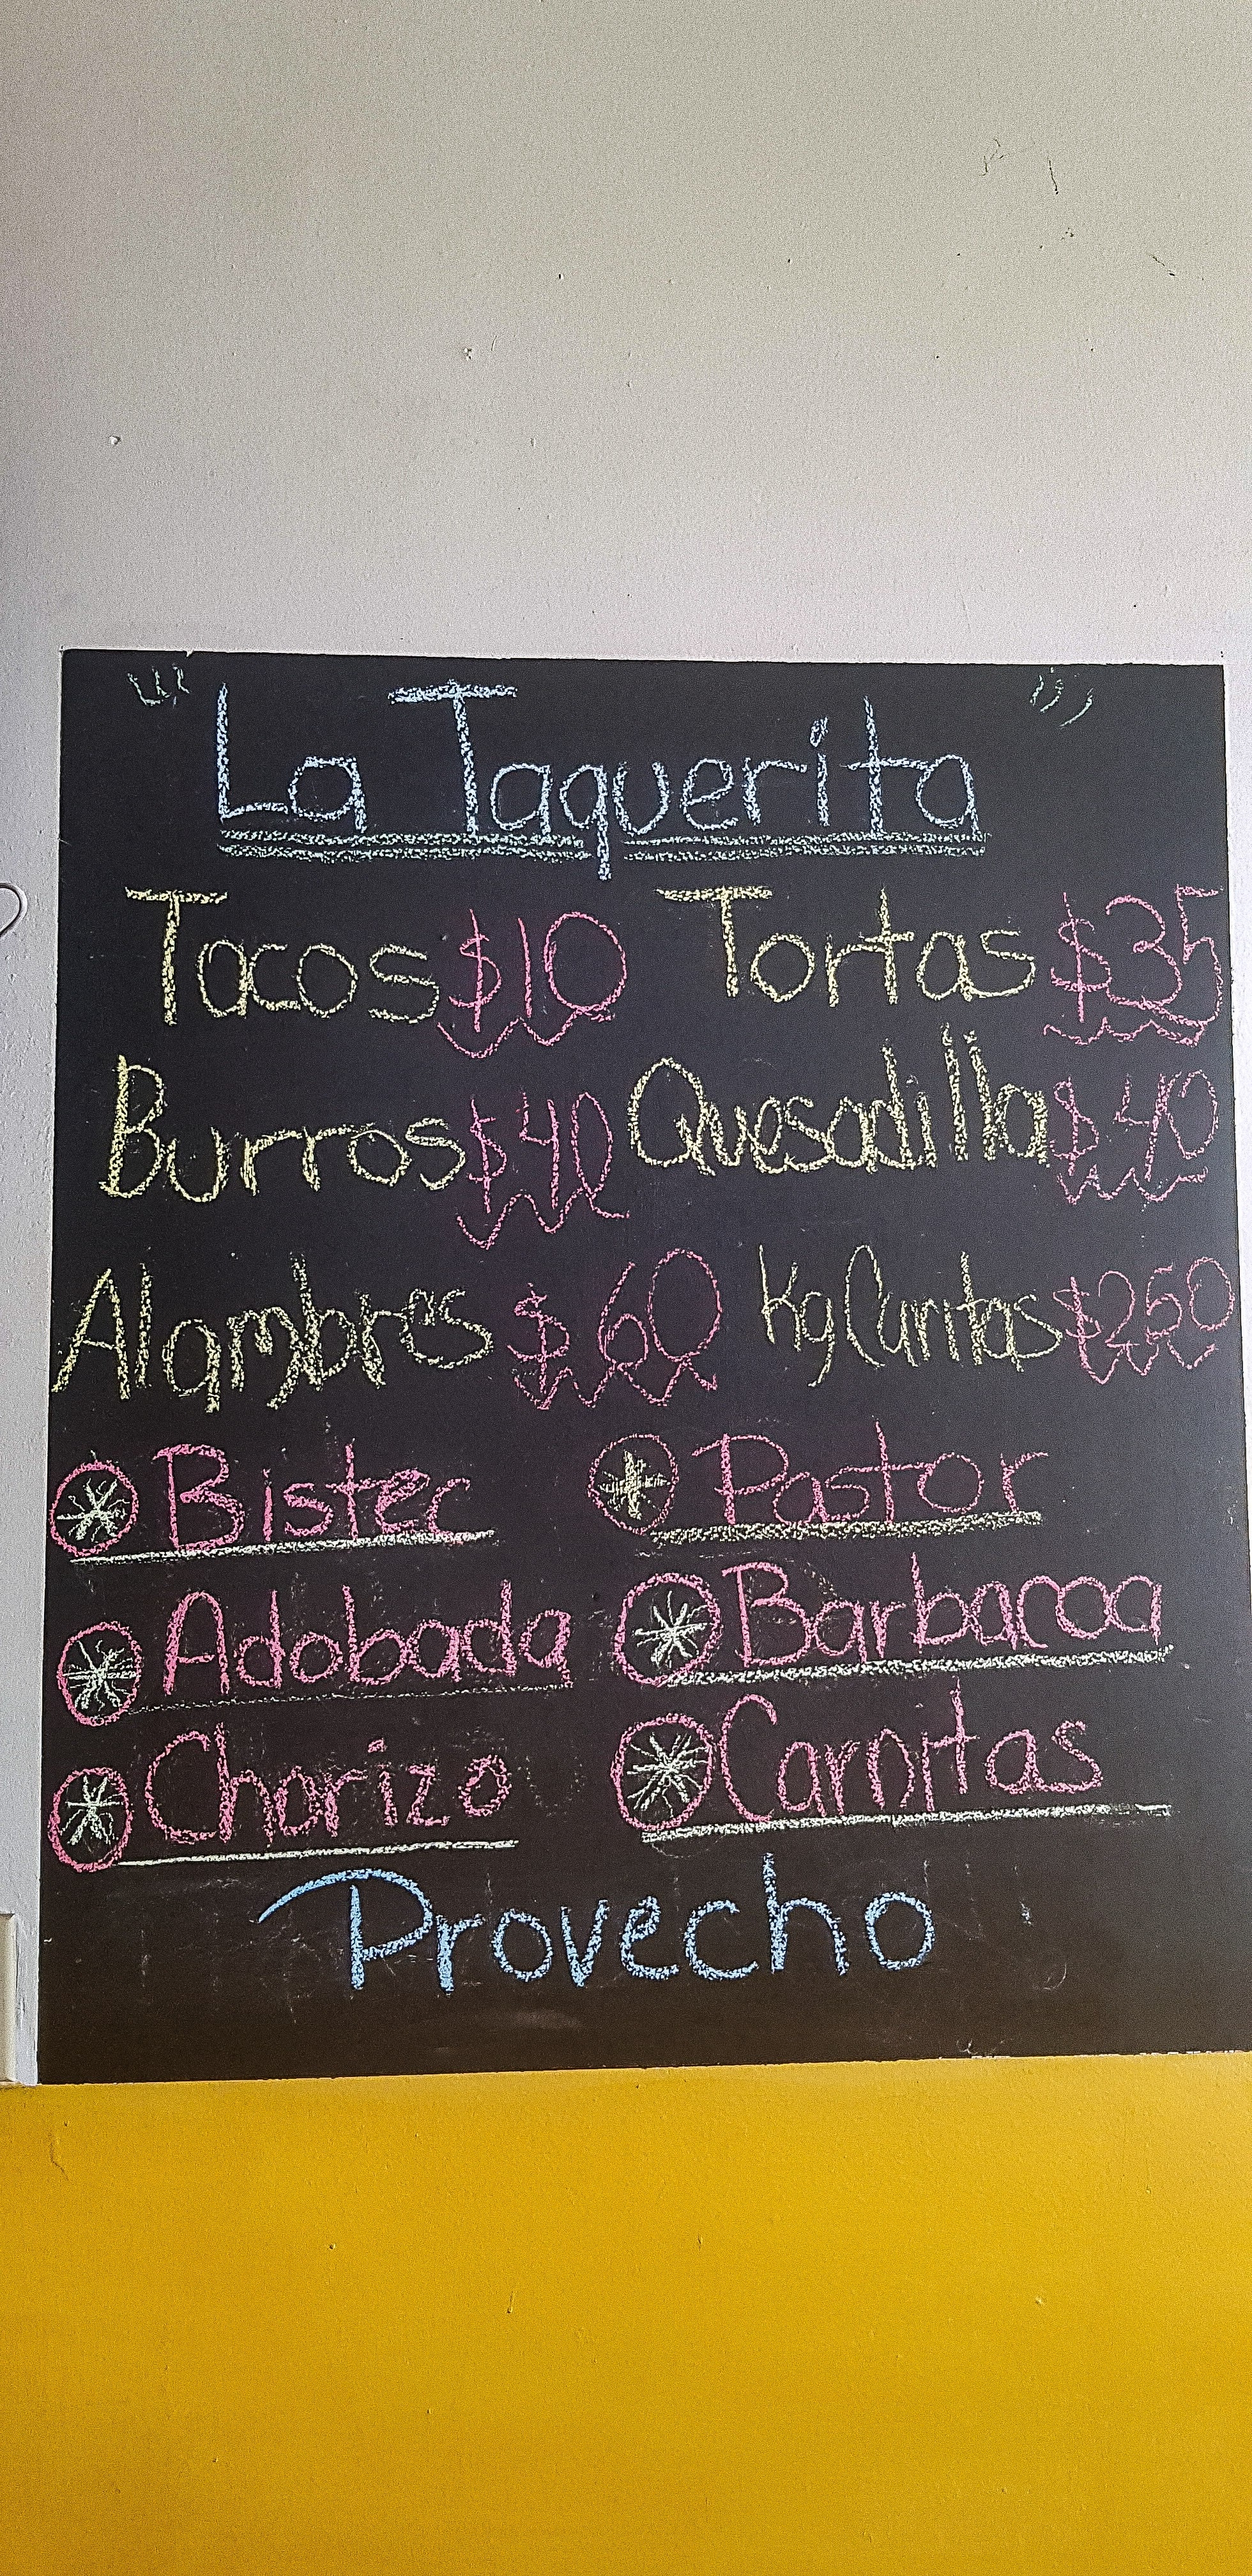 La Taquerita
Tacos $10 Tortas $35
Burros $40 Quesadilla $40
Alambres $60 Kg Carnitas $250
Bistec Pastor
Adobada Barbacoa
Chorizo Carnitas
Provecho